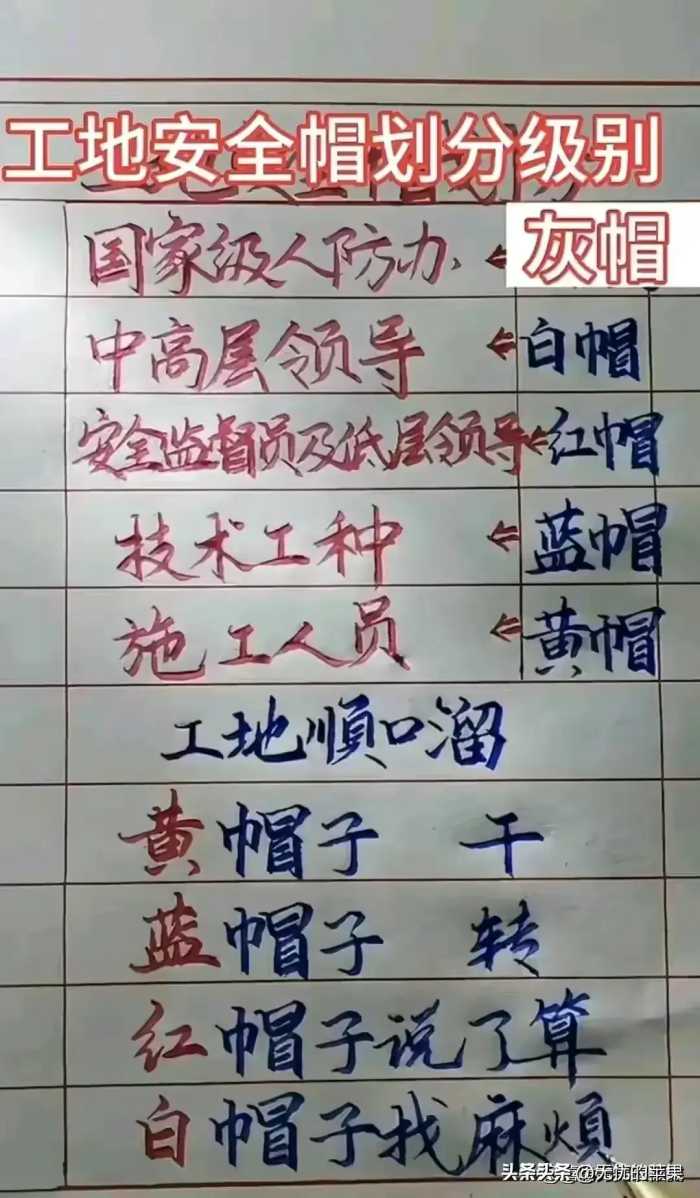 工地安全帽划分级别
国家级人防办 ← 灰帽
中高层领导 ← 白帽
安全监督员及低层领导 ← 红帽
技术工种 ← 蓝帽
施工人员 ← 黄帽
工地顺口溜
黄帽子 干
蓝帽子 转
红帽子说了算
白帽子找麻烦
头条头条 @无忧的苹果